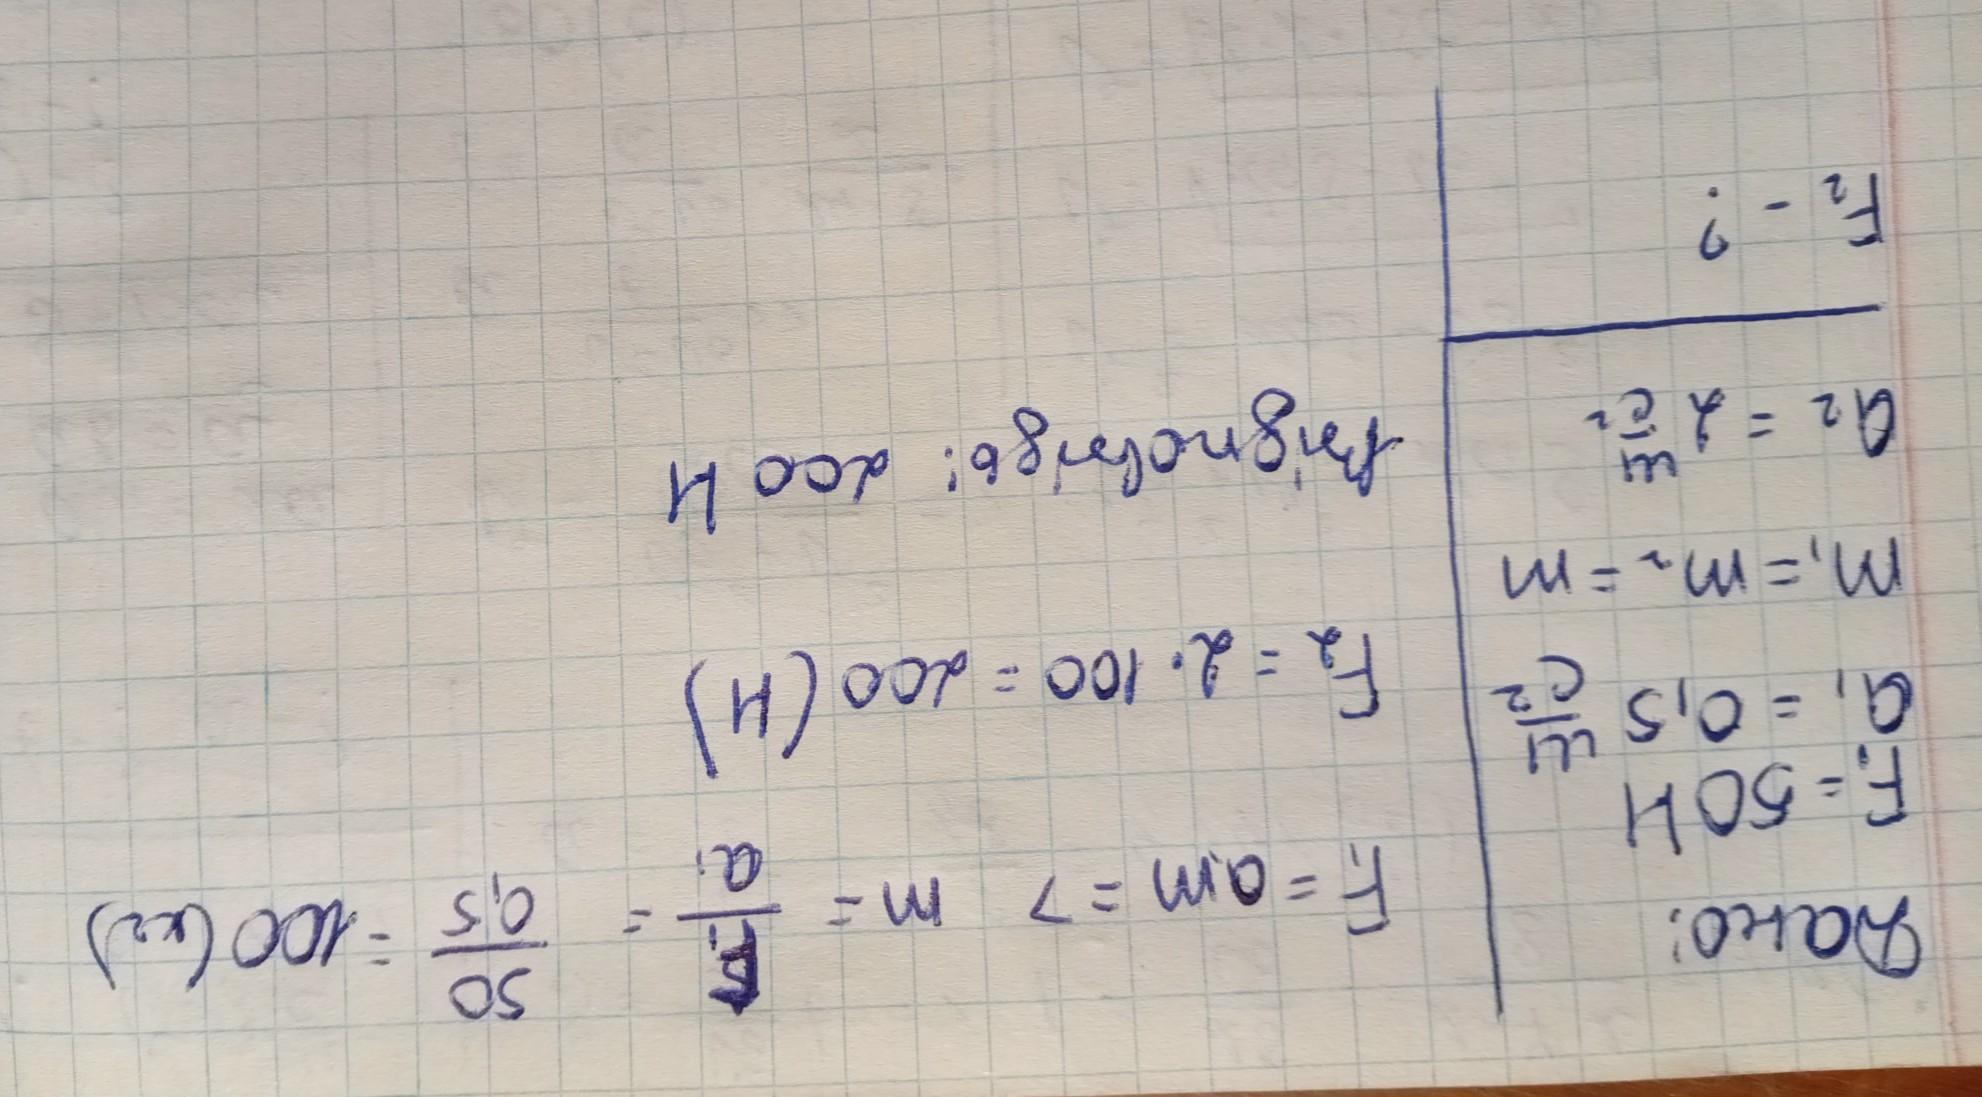 Дано:
F₁ = 50 Н
a₁ = 0,5 м/с²
m₁ = m₂ = m
a₂ = 2 м/с²
F₂ - ?
F₁ = a₁m => m = F₁/a₁ = 50/0,5 = 100 (кг)
F₂ = 2 · 100 = 200 (Н)
Відповідь: 200 Н